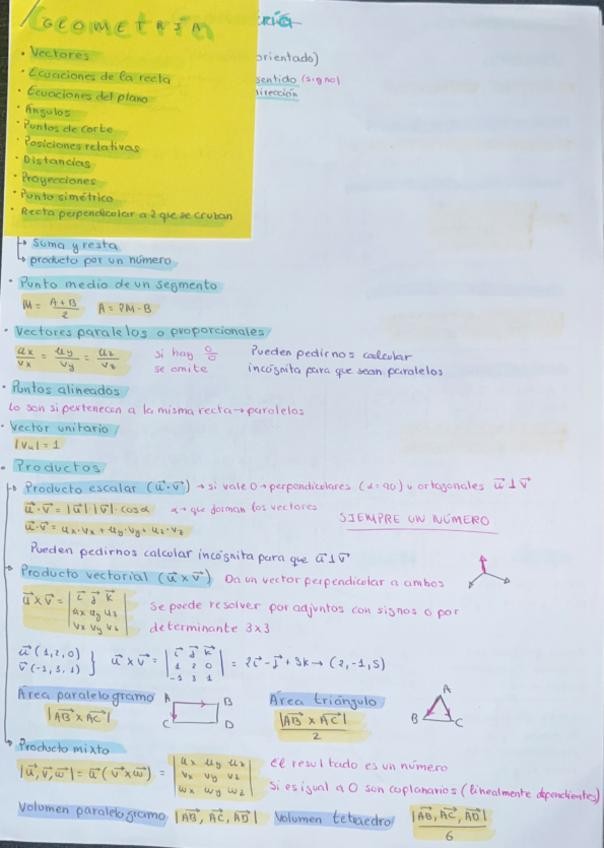 GEOMETRIA
• Vectores
• Ecuaciones de la recta
• Ecuaciones del plano
• Ángulos
• Puntos de corte
• Posiciones relativas
• Distancias
• Proyecciones
• Punto simétrico
• Recta perpendicular a 2 que se cruzan
orientado)
sentido (signo)
dirección
↳ Suma y resta
↳ producto por un número
• Punto medio de un segmento
M = A+B/2 A = 2M-B
• Vectores paralelos o proporcionales
ux/vx = uy/vy = uz/vz si hay 0/0 se omite
Pueden pedirnos calcular incógnita para que sean paralelos
• Puntos alineados
Lo son si pertenecen a la misma recta → paralelos
• Vector unitario
|Vu| = 1
• Productos
→ Producto escalar (u⃗·v⃗) → si vale 0 → perpendiculares (α=90) u ortogonales u⃗⊥v⃗
u⃗·v⃗ = |u⃗|·|v⃗|·cosα α→ que forman los vectores
u⃗·v⃗ = ux·vx + uy·vy + uz·vz SIEMPRE UN NÚMERO
Pueden pedirnos calcular incógnita para que u⃗⊥v⃗
→ Producto vectorial (u⃗×v⃗) Da un vector perpendicular a ambos
u⃗×v⃗ = | i⃗ j⃗ k⃗ |
| ux uy uz |
| vx vy vz |
Se puede resolver por adjuntos con signos o por
determinante 3x3
u⃗(1,2,0)
v⃗(-1,3,1) } u⃗×v⃗ = | i⃗ j⃗ k⃗ |
| 1 2 0 |
| -1 3 1 | = 2i⃗-j⃗+5k → (2,-1,5)
Área paralelogramo A B C D
|AB⃗ × AC⃗|
Área triángulo A B C
|AB⃗ × AC⃗|/2
→ Producto mixto
|u⃗,v⃗,w⃗| = u⃗(v⃗×w⃗) = | ux uy uz |
| vx vy vz |
| wx wy wz |
El resultado es un número
Si es igual a 0 son coplanarios (linealmente dependientes)
Volumen paralelogramo |AB⃗, AC⃗, AD⃗| Volumen tetraedro |AB⃗, AC⃗, AD⃗|/6